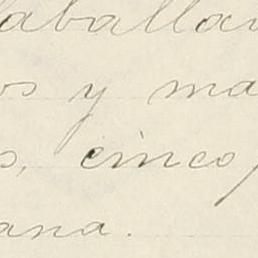 caballa
os y ma
s, cinco
ana.